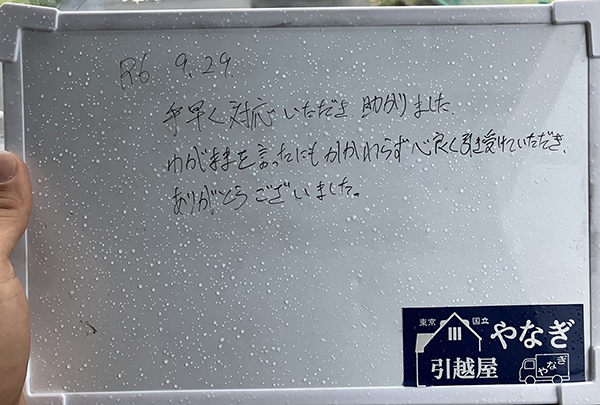 R6 9.29
手早く対応いただき助かりました.
わがままを言ったにもかかわらず心良く引き受けていただき、
ありがとうございました。
東京 国立
やなぎ
引越屋
やなぎ